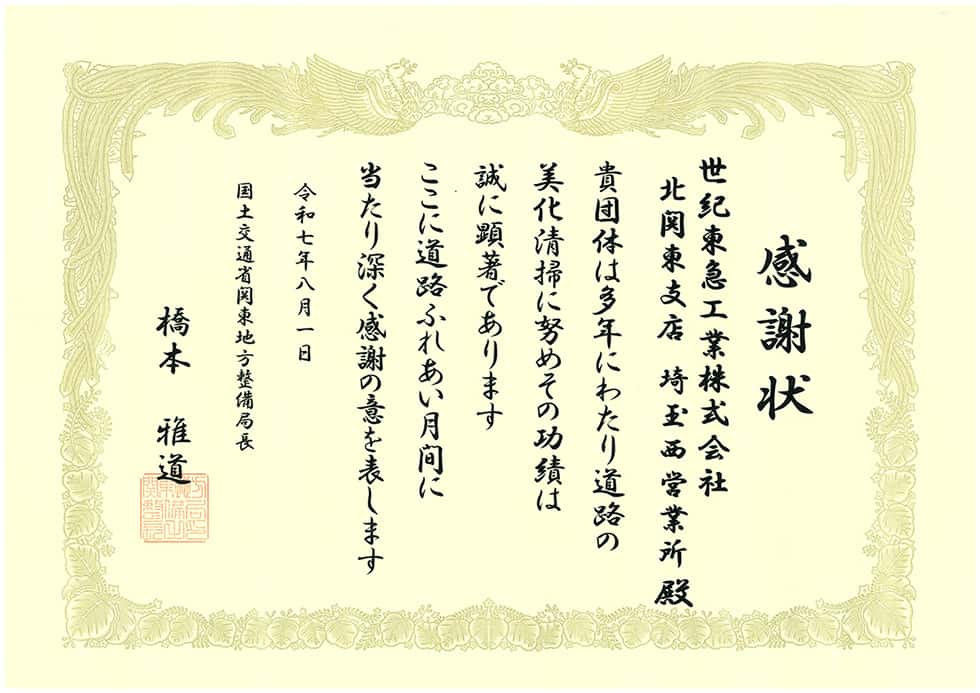 感謝状
世紀東急工業株式会社
北関東支店 埼玉西営業所 殿
貴団体は多年にわたり道路の
美化清掃に努めその功績は
誠に顕著であります
ここに道路ふれあい月間に
当たり深く感謝の意を表します
令和七年八月一日
国土交通省関東地方整備局長
橋本 雅道